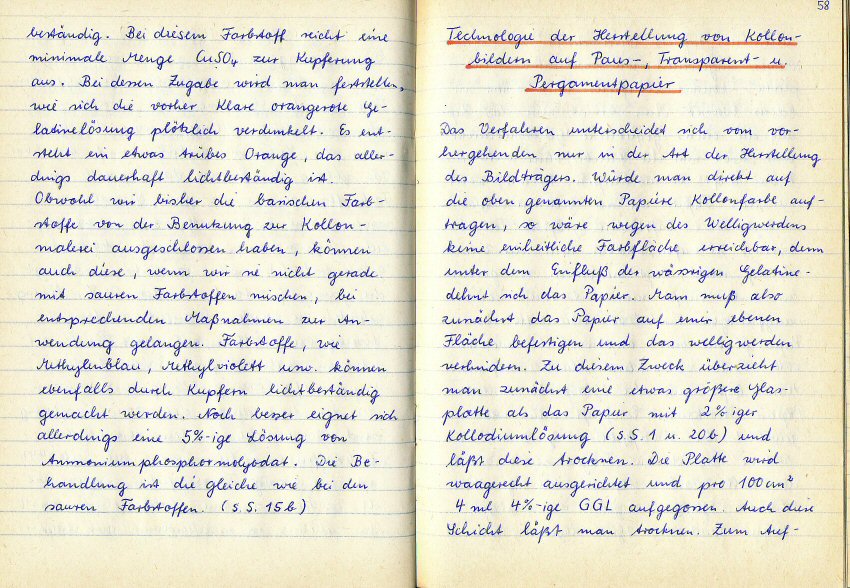 beständig. Bei diesem Farbstoff reicht eine
minimale Menge CuSO₄ zur Kupferung
aus. Bei dessen Zugabe wird man feststellen,
wie sich die vorher klare orangerote Ge-
latinelösung plötzlich verdunkelt. Es ent-
steht ein etwas trübes Orange, das aller-
dings dauerhaft lichtbeständig ist.
Obwohl wir bisher die basischen Farb-
stoffe von der Benutzung zur Kollon-
malerei ausgeschlossen haben, können
auch diese, wenn wir sie nicht gerade
mit sauren Farbstoffen mischen, bei
entsprechenden Maßnahmen zur An-
wendung gelangen. Farbstoffe, wie
Methylenblau, Methylviolett usw. können
ebenfalls durch Kupfern lichtbeständig
gemacht werden. Noch besser eignet sich
allerdings eine 5%-ige Lösung von
Ammoniumphosphormolybdat. Die Be-
handlung ist die gleiche wie bei den
sauren Farbstoffen. (s. S. 15b)
58
Technologie der Herstellung von Kollon-
bildern auf Paus-, Transparent- u.
Pergamentpapier
Das Verfahren unterscheidet sich vom vor-
hergehenden nur in der Art der Herstellung
des Bildträgers. Würde man direkt auf
die oben genannten Papiere Kollonfarbe auf-
tragen, so wäre wegen des Welligwerdens
keine einheitliche Farbfläche erreichbar, denn
unter dem Einfluß der wässrigen Gelatine-
dehnt sich das Papier. Man muß also
zunächst das Papier auf einer ebenen
Fläche befestigen und das welligwerden
verhindern. Zu diesem Zweck überzieht
man zunächst eine etwas größere Glas-
platte als das Papier mit 2%iger
Kollodiumlösung (s. S. 1 u. 20b) und
läßt diese trocknen. Die Platte wird
waagerecht ausgerichtet und pro 100cm²
4 ml 4%-ige GGL aufgegossen. Auch diese
Schicht läßt man trocknen. Zum Auf-